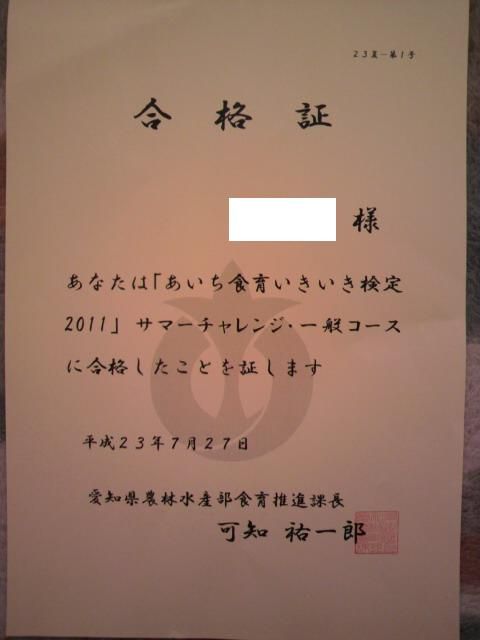 23夏－第1号
合格証
様
あなたは「あいち食育いきいき検定
2011」サマーチャレンジ・一般コース
に合格したことを証します
平成23年7月27日
愛知県農林水産部食育推進課長
可知 祐一郎